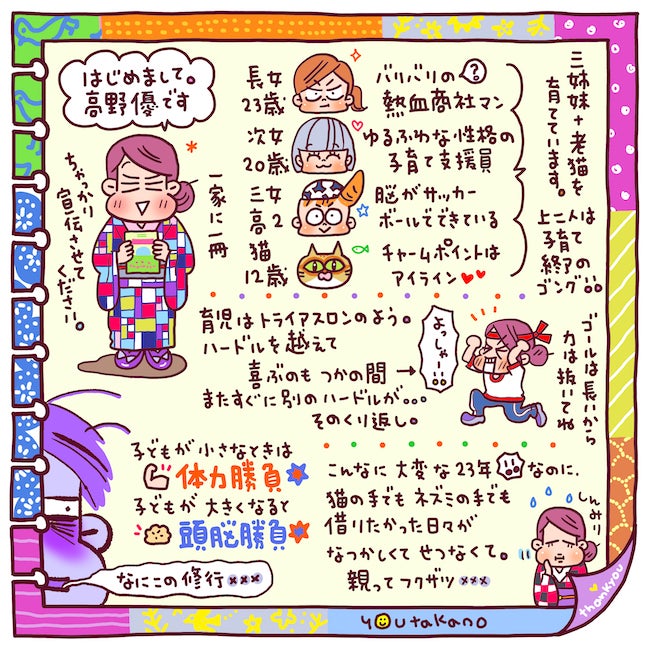 はじめまして。
高野優です
ちゃっかり
宣伝させて
ください。
一家に一冊
長女
23歳
バリバリの?
熱血商社マン
次女
20歳
ゆるふわな性格の
子育て支援員
三女
高2
脳がサッカー
ボールでできている
猫
12歳
チャームポイントは
アイライン
三姉妹+老猫を
育てています。
上二人は
子育て
終了の
ゴング
育児はトライアスロンのよう。
ハードルを越えて
喜ぶのもつかの間→
またすぐに別のハードルが…
そのくり返し。
よっしゃー!!
ゴールは長いから
力は抜いてね
子どもが小さなときは
体力勝負
子どもが大きくなると
頭脳勝負
なにこの修行×××
こんなに大変な23年なのに、
猫の手でもネズミの手でも
借りたかった日々が
なつかしくてせつなくて。
親ってフクザツ×××
しんみり
youtakano
thankyou